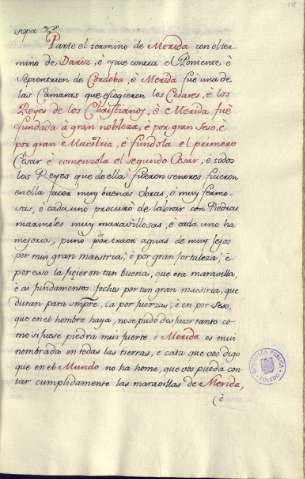 Parte el termino de Merida con el ter-
mino de Dariz, è yace contra el Poniente, è
Septentrion de Cordoba, è Merida fuè una de
las Camaras que escogieron los Cesares, è los
Reyes de los Christianos, è è Merida fuè
fundada à gran nobleza, è por gran Seso, è
por gran è Maestria, è fundòla el primero
Cesar è comenzola el segundo Cesar, è todos
los Reyes que de ella fueron señores ficieron
en ella facer muy buenas obras, è muy fermo-
sas, è cada uno procurò de labrar con Piedras
marmoles muy maravillosas, è cada uno ha
mejorar, punò por traer aguas de muy lejos
por muy gran maestria, è por gran fortaleza, è
por esso la ficieron tan buena, que era maravilla
è ai fundamentos fechos por tan gran maestria, que
duran para siempre, ca por fuerza, è en por Seso,
que en el hombre haya, no se pudo desfacer tanto co-
mo si fuese piedra mui fuerte, è Merida es mui
nombrada en todas las tierras, è cata que vos digo
que en el Mundo no ha home, que vos pueda con-
tar cumplidamente las maravillas de Merida,
è